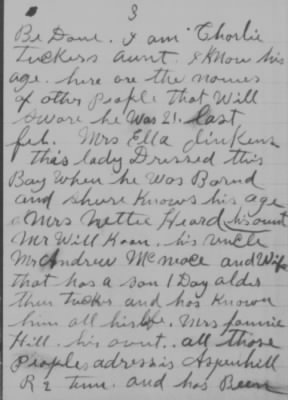 3
Be Done. I am Charlie
Tuckers aunt. I Know his
age. here are the names
of other People that Will
sware he Was 21. last
feb. Mrs Ella Jinkens
this lady Dressed this
Boy When he Was Bornd
and shure Knows his age
Mrs Nettie Heard his aunt
Mr Will Koon. his uncle
Mr Andrew McMoce and Wife
that has a son 1 Day alder
then Tucker and has Known
him all his life. Mrs fannie
Hill. his aunt. all those
Peoples adress is Aspenhill
R 2 Tenn. and has Been